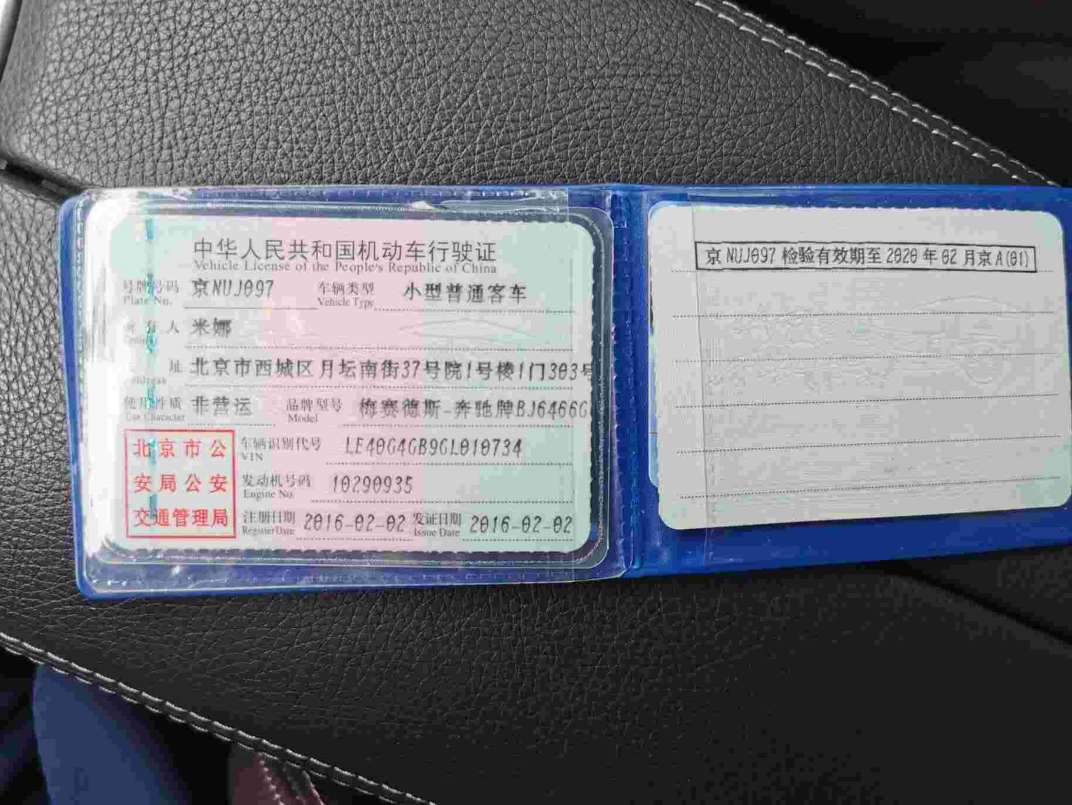 中华人民共和国机动车行驶证
Vehicle License of the People's Republic of China
号牌号码 京NUJ097 车辆类型 小型普通客车
Plate No. Vehicle Type
人 米娜
址 北京市西城区月坛南街37号院1号楼1门303号
使用性质 非营运 品牌型号 梅赛德斯-奔驰牌BJ6466G
Use Character Model
北京市公
安局公安
交通管理局
车辆识别代号 LE40G4GB9GL010734
VIN
发动机号码 10290935
Engine No.
注册日期 2016-02-02 发证日期 2016-02-02
Register Date Issue Date
京NUJ097 检验有效期至 2020 年 02 月京 A(01)